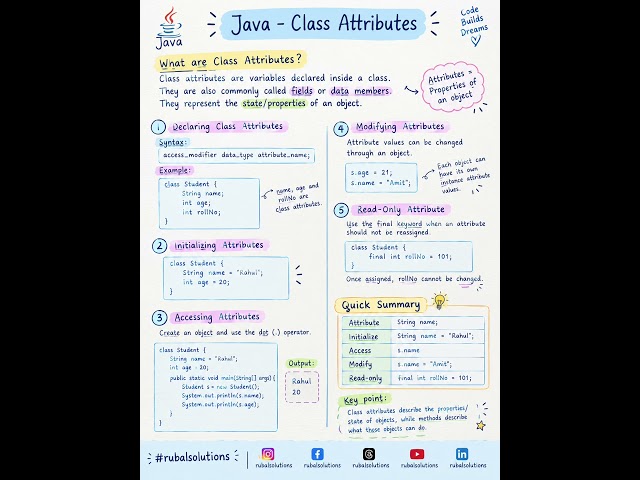 Java
Java - Class Attributes
Code
Builds
Dreams
What are Class Attributes?
Class attributes are variables declared inside a class.
They are also commonly called fields or data members.
They represent the state/properties of an object.
Attributes =
Properties of
an object
1 Declaring Class Attributes
Syntax:
access_modifier data_type attribute_name;
Example:
class Student {
String name;
int age;
int rollNo;
}
name, age and
rollNo are
class attributes.
2 Initializing Attributes
class Student {
String name = "Rahul";
int age = 20;
}
3 Accessing Attributes
Create an object and use the dot (.) operator.
class Student {
String name = "Rahul";
int age = 20;
public static void main(String[] args) {
Student s = new Student();
System.out.println(s.name);
System.out.println(s.age);
}
}
Output:
Rahul
20
4 Modifying Attributes
Attribute values can be changed
through an object.
s.age = 21;
s.name = "Amit";
Each object can
have its own
instance attribute
values.
5 Read-Only Attribute
Use the final keyword when an attribute
should not be reassigned.
class Student {
final int rollNo = 101;
}
Once assigned, rollNo cannot be changed.
Quick Summary
Attribute String name;
Initialize String name = "Rahul";
Access s.name
Modify s.name = "Amit";
Read-only final int rollNo = 101;
Key point:
Class attributes describe the properties/
state of objects, while methods describe
what these objects can do.
#rubalsolutions
rubalsolutions rubalsolutions rubalsolutions rubalsolutions rubalsolutions